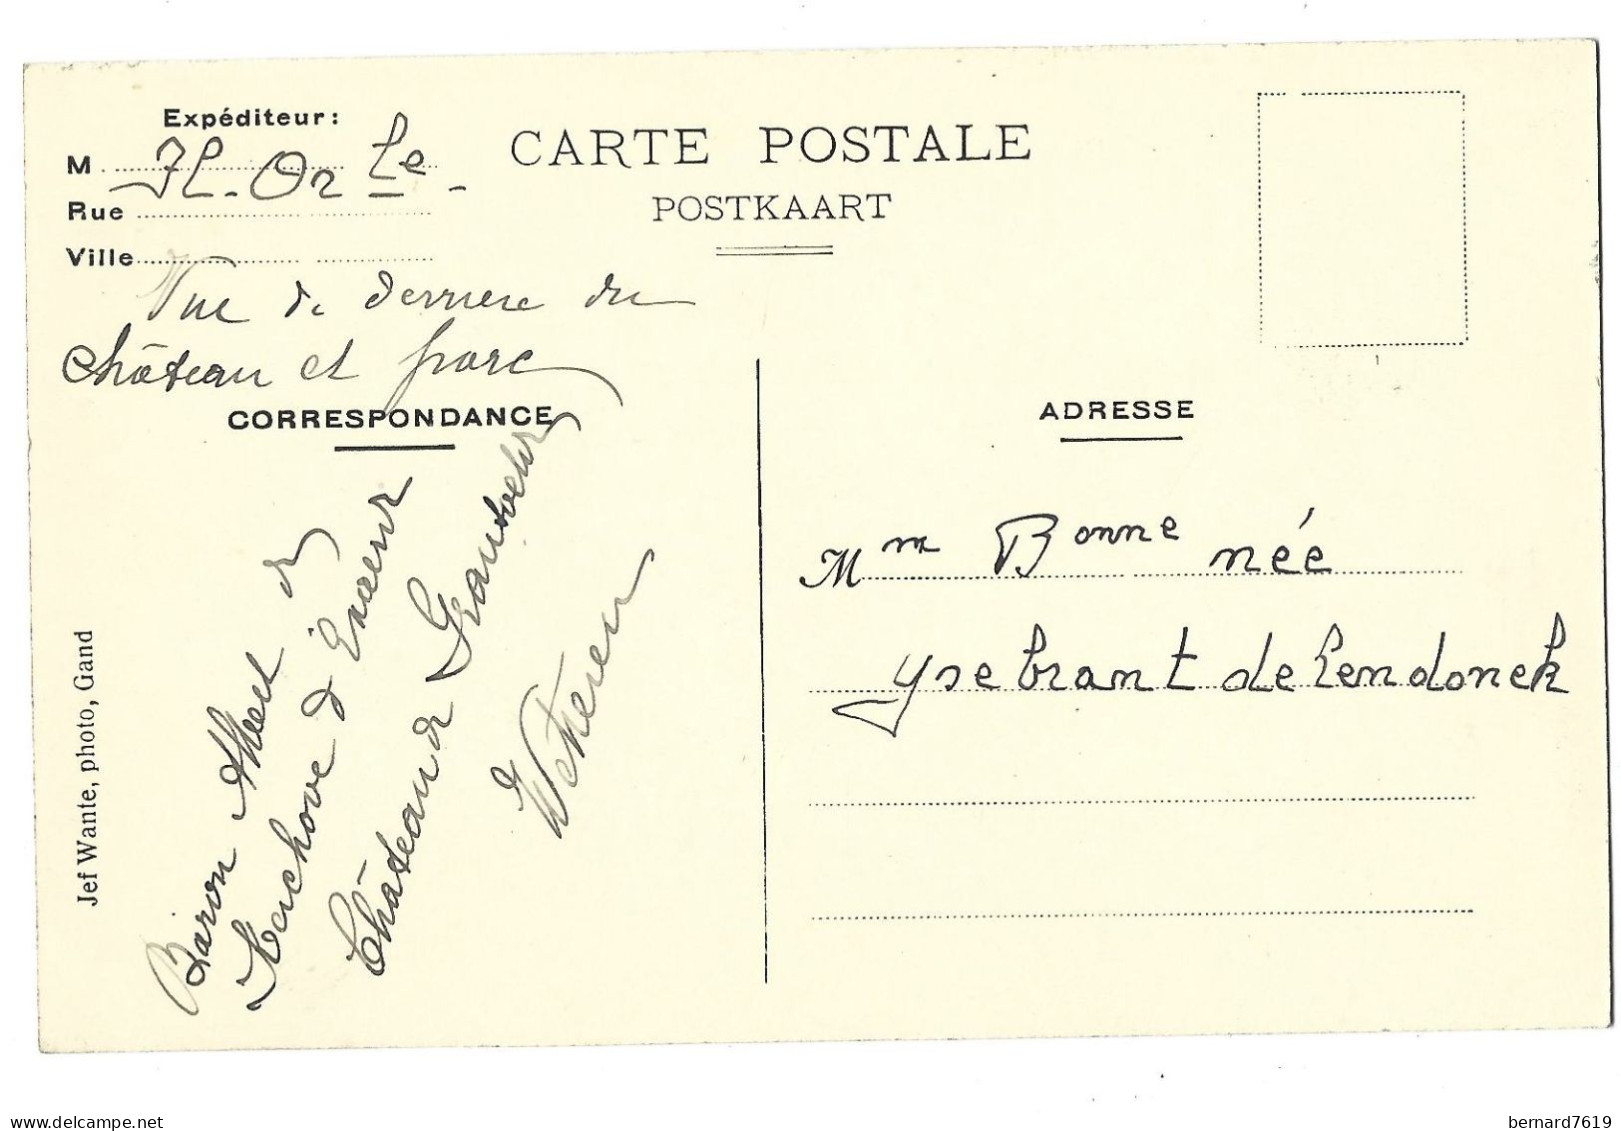 Expéditeur:
CARTE POSTALE
M. Fl. Or Le
Rue
POSTKAART
Ville
Vue de derriere du
Château et parc
CORRESPONDANCE
ADRESSE
Baron Albert de
Kerchove d'Exaerde
Château de Grantvelde
Wetteren
Mm Bonne née
Ysebrant de Lendonck
Jef Wante, photo, Gand
www.delcampe.net
bernard7619